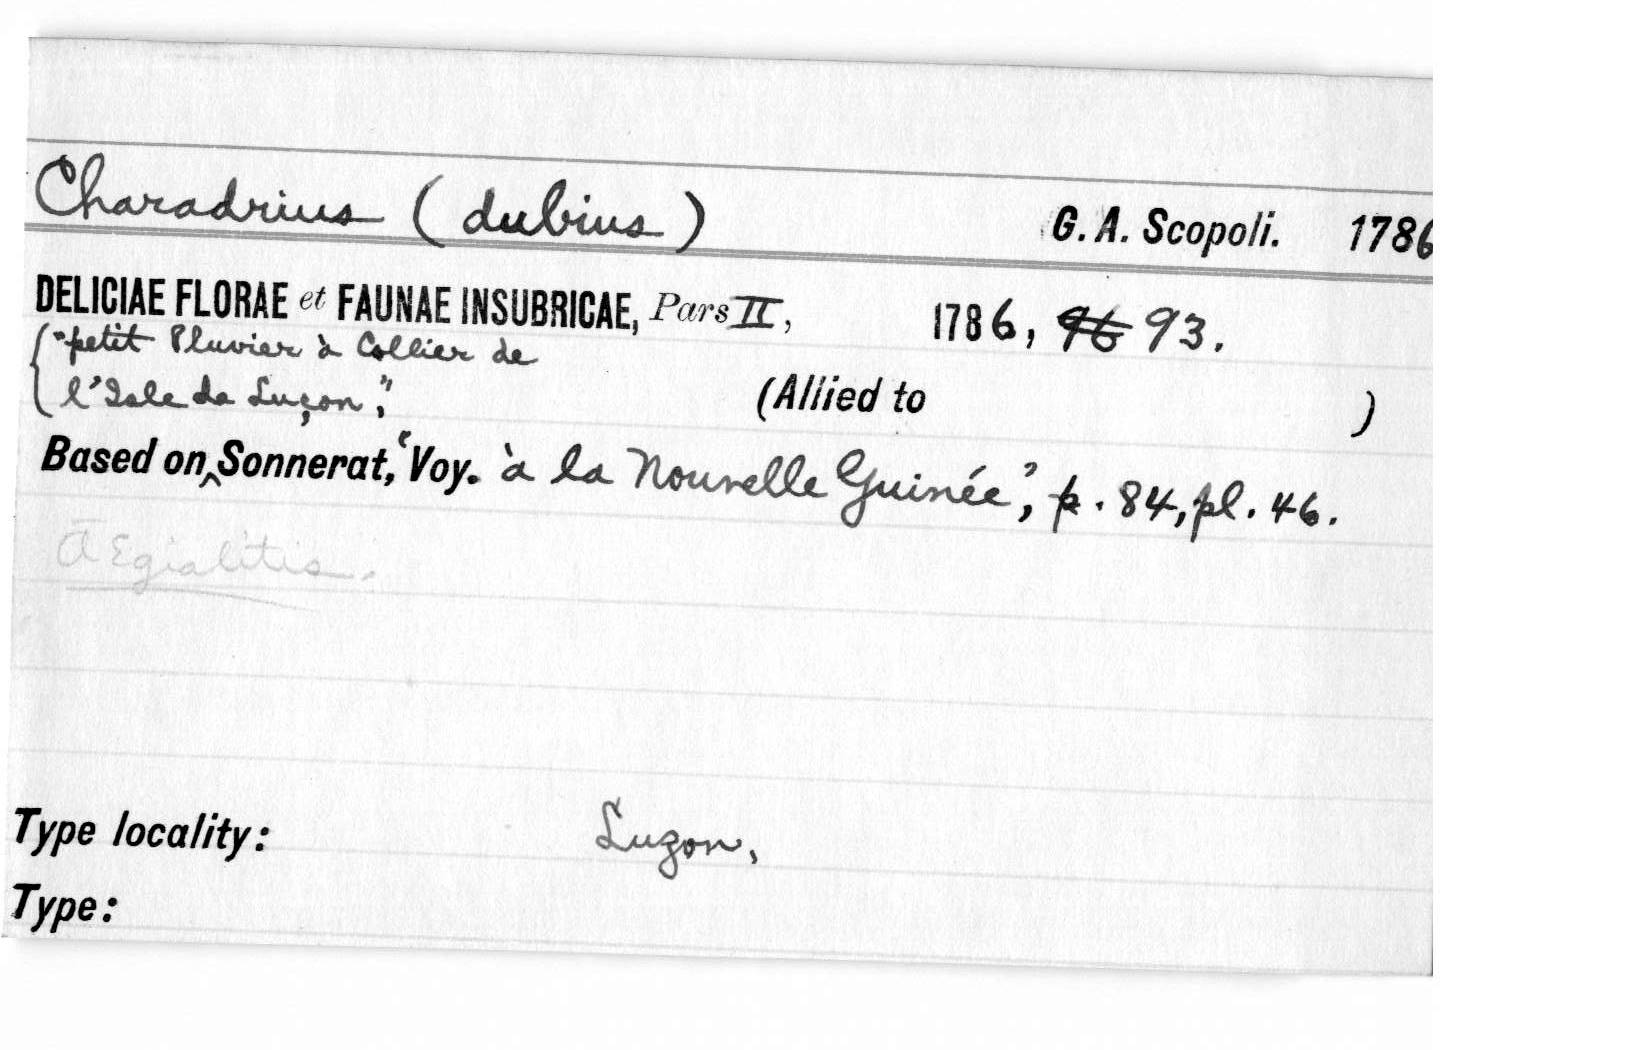 Charadrius (dubius) G. A. Scopoli. 1786
DELICIAE FLORAE et FAUNAE INSUBRICAE, Pars II, 1786, 96 93.
("petit Pluvier à Collier de
l'Isle de Luçon", (Allied to )
Based on ‸ Sonnerat, 'Voy. à la Nouvelle Guinée', p. 84, pl. 46.
Aegialitis.
Type locality: Luzon,
Type: